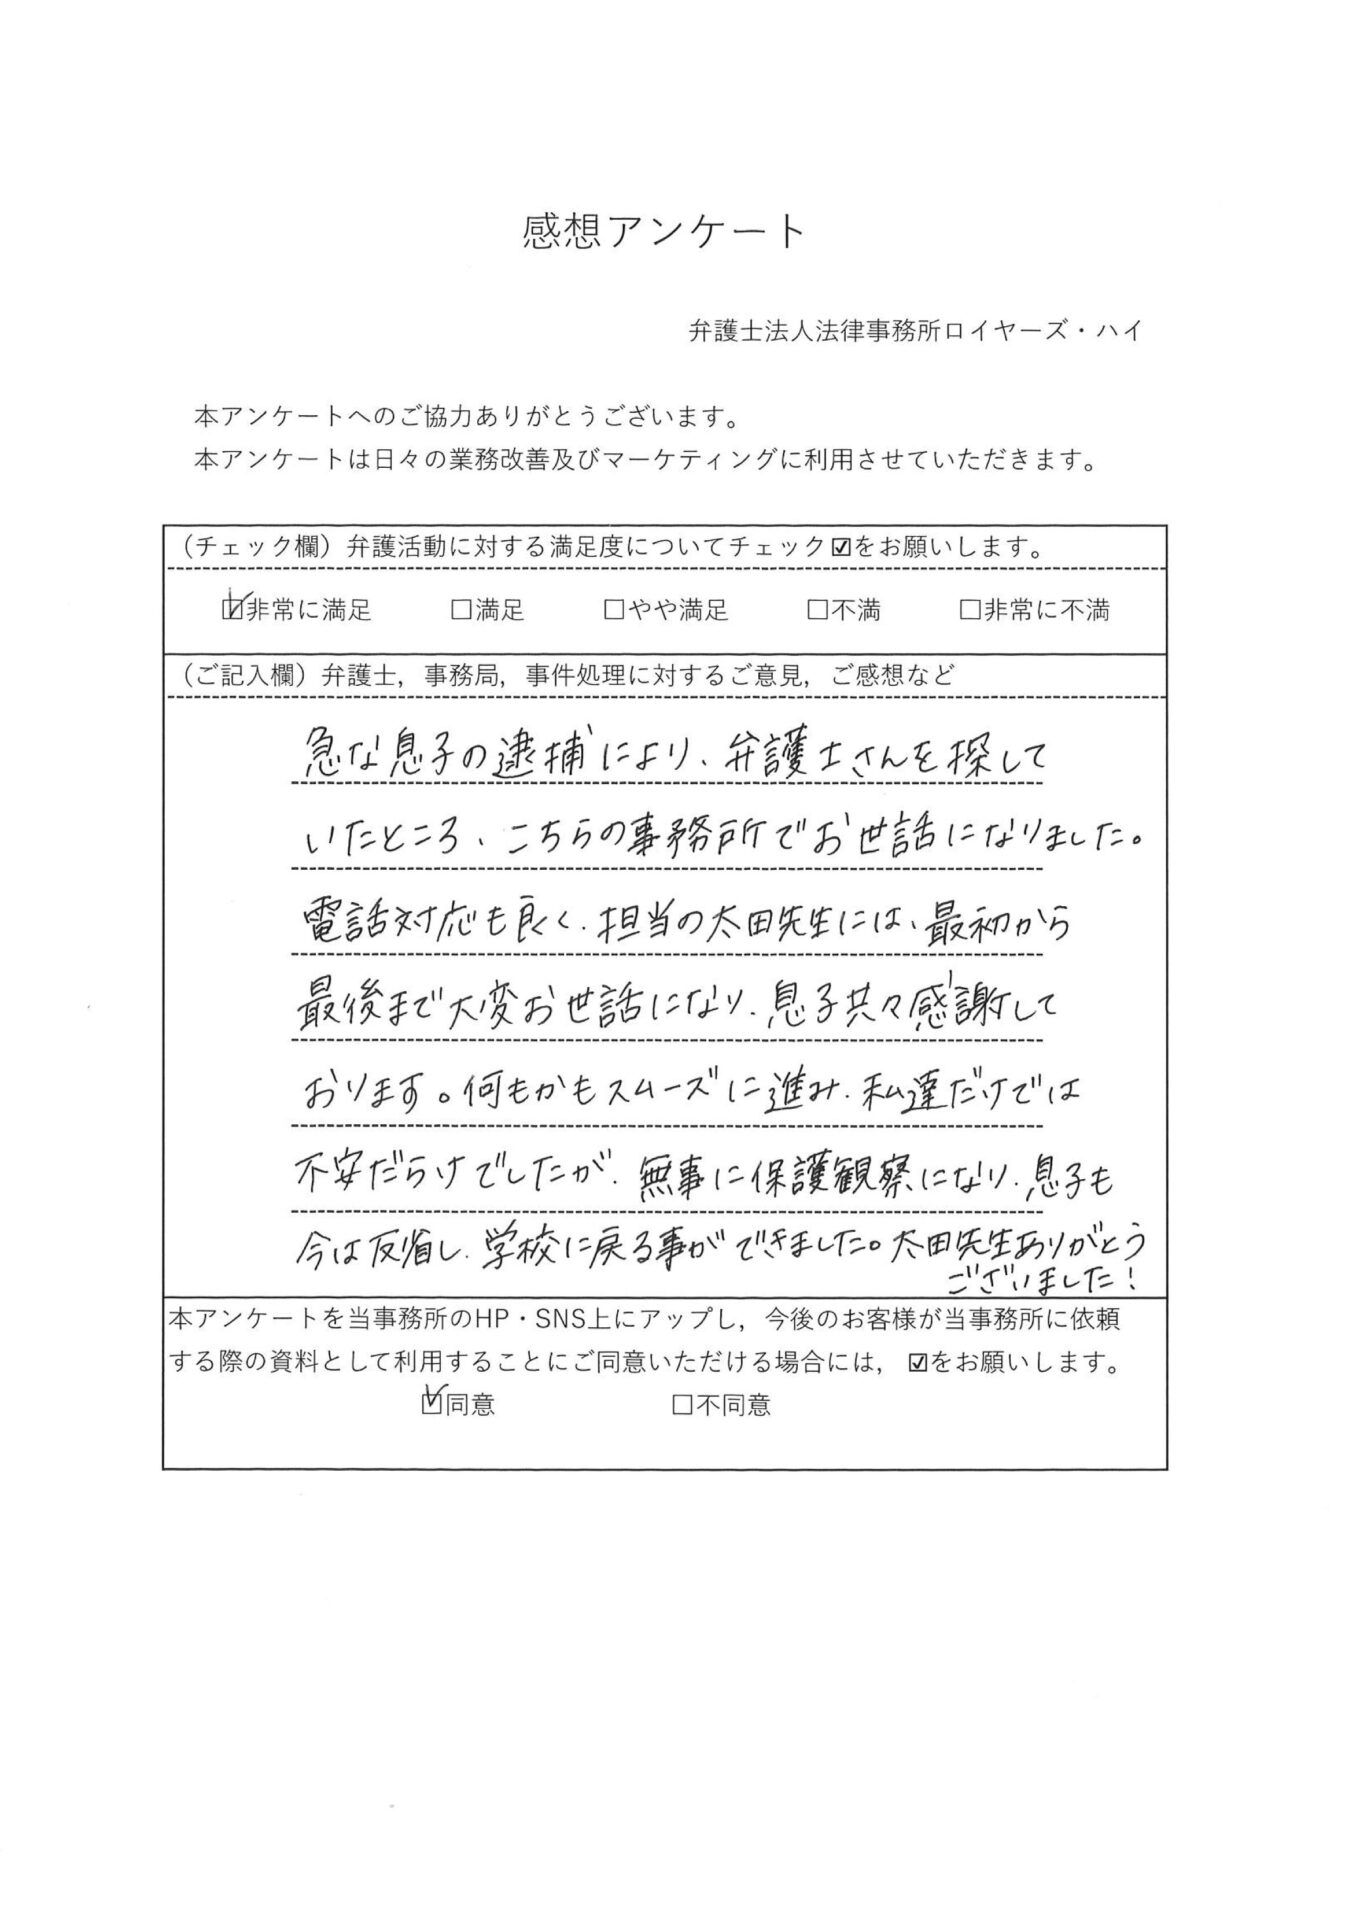 感想アンケート
弁護士法人法律事務所ロイヤーズ・ハイ
本アンケートへのご協力ありがとうございます。
本アンケートは日々の業務改善及びマーケティングに利用させていただきます。
（チェック欄）弁護活動に対する満足度についてチェック☑をお願いします。
☑非常に満足 □満足 □やや満足 □不満 □非常に不満
（ご記入欄）弁護士，事務局，事件処理に対するご意見，ご感想など
急な息子の逮捕により、弁護士さんを探して
いたところ、こちらの事務所でお世話になりました。
電話対応も良く、担当の太田先生には、最初から
最後まで大変お世話になり、息子共々感謝して
おります。何もかもスムーズに進み、私達だけでは
不安だらけでしたが、無事に保護観察になり、息子も
今は反省し、学校に戻る事ができました。太田先生ありがとう
ございました！
本アンケートを当事務所のHP・SNS上にアップし，今後のお客様が当事務所に依頼
する際の資料として利用することにご同意いただける場合には，☑をお願いします。
☑同意 □不同意